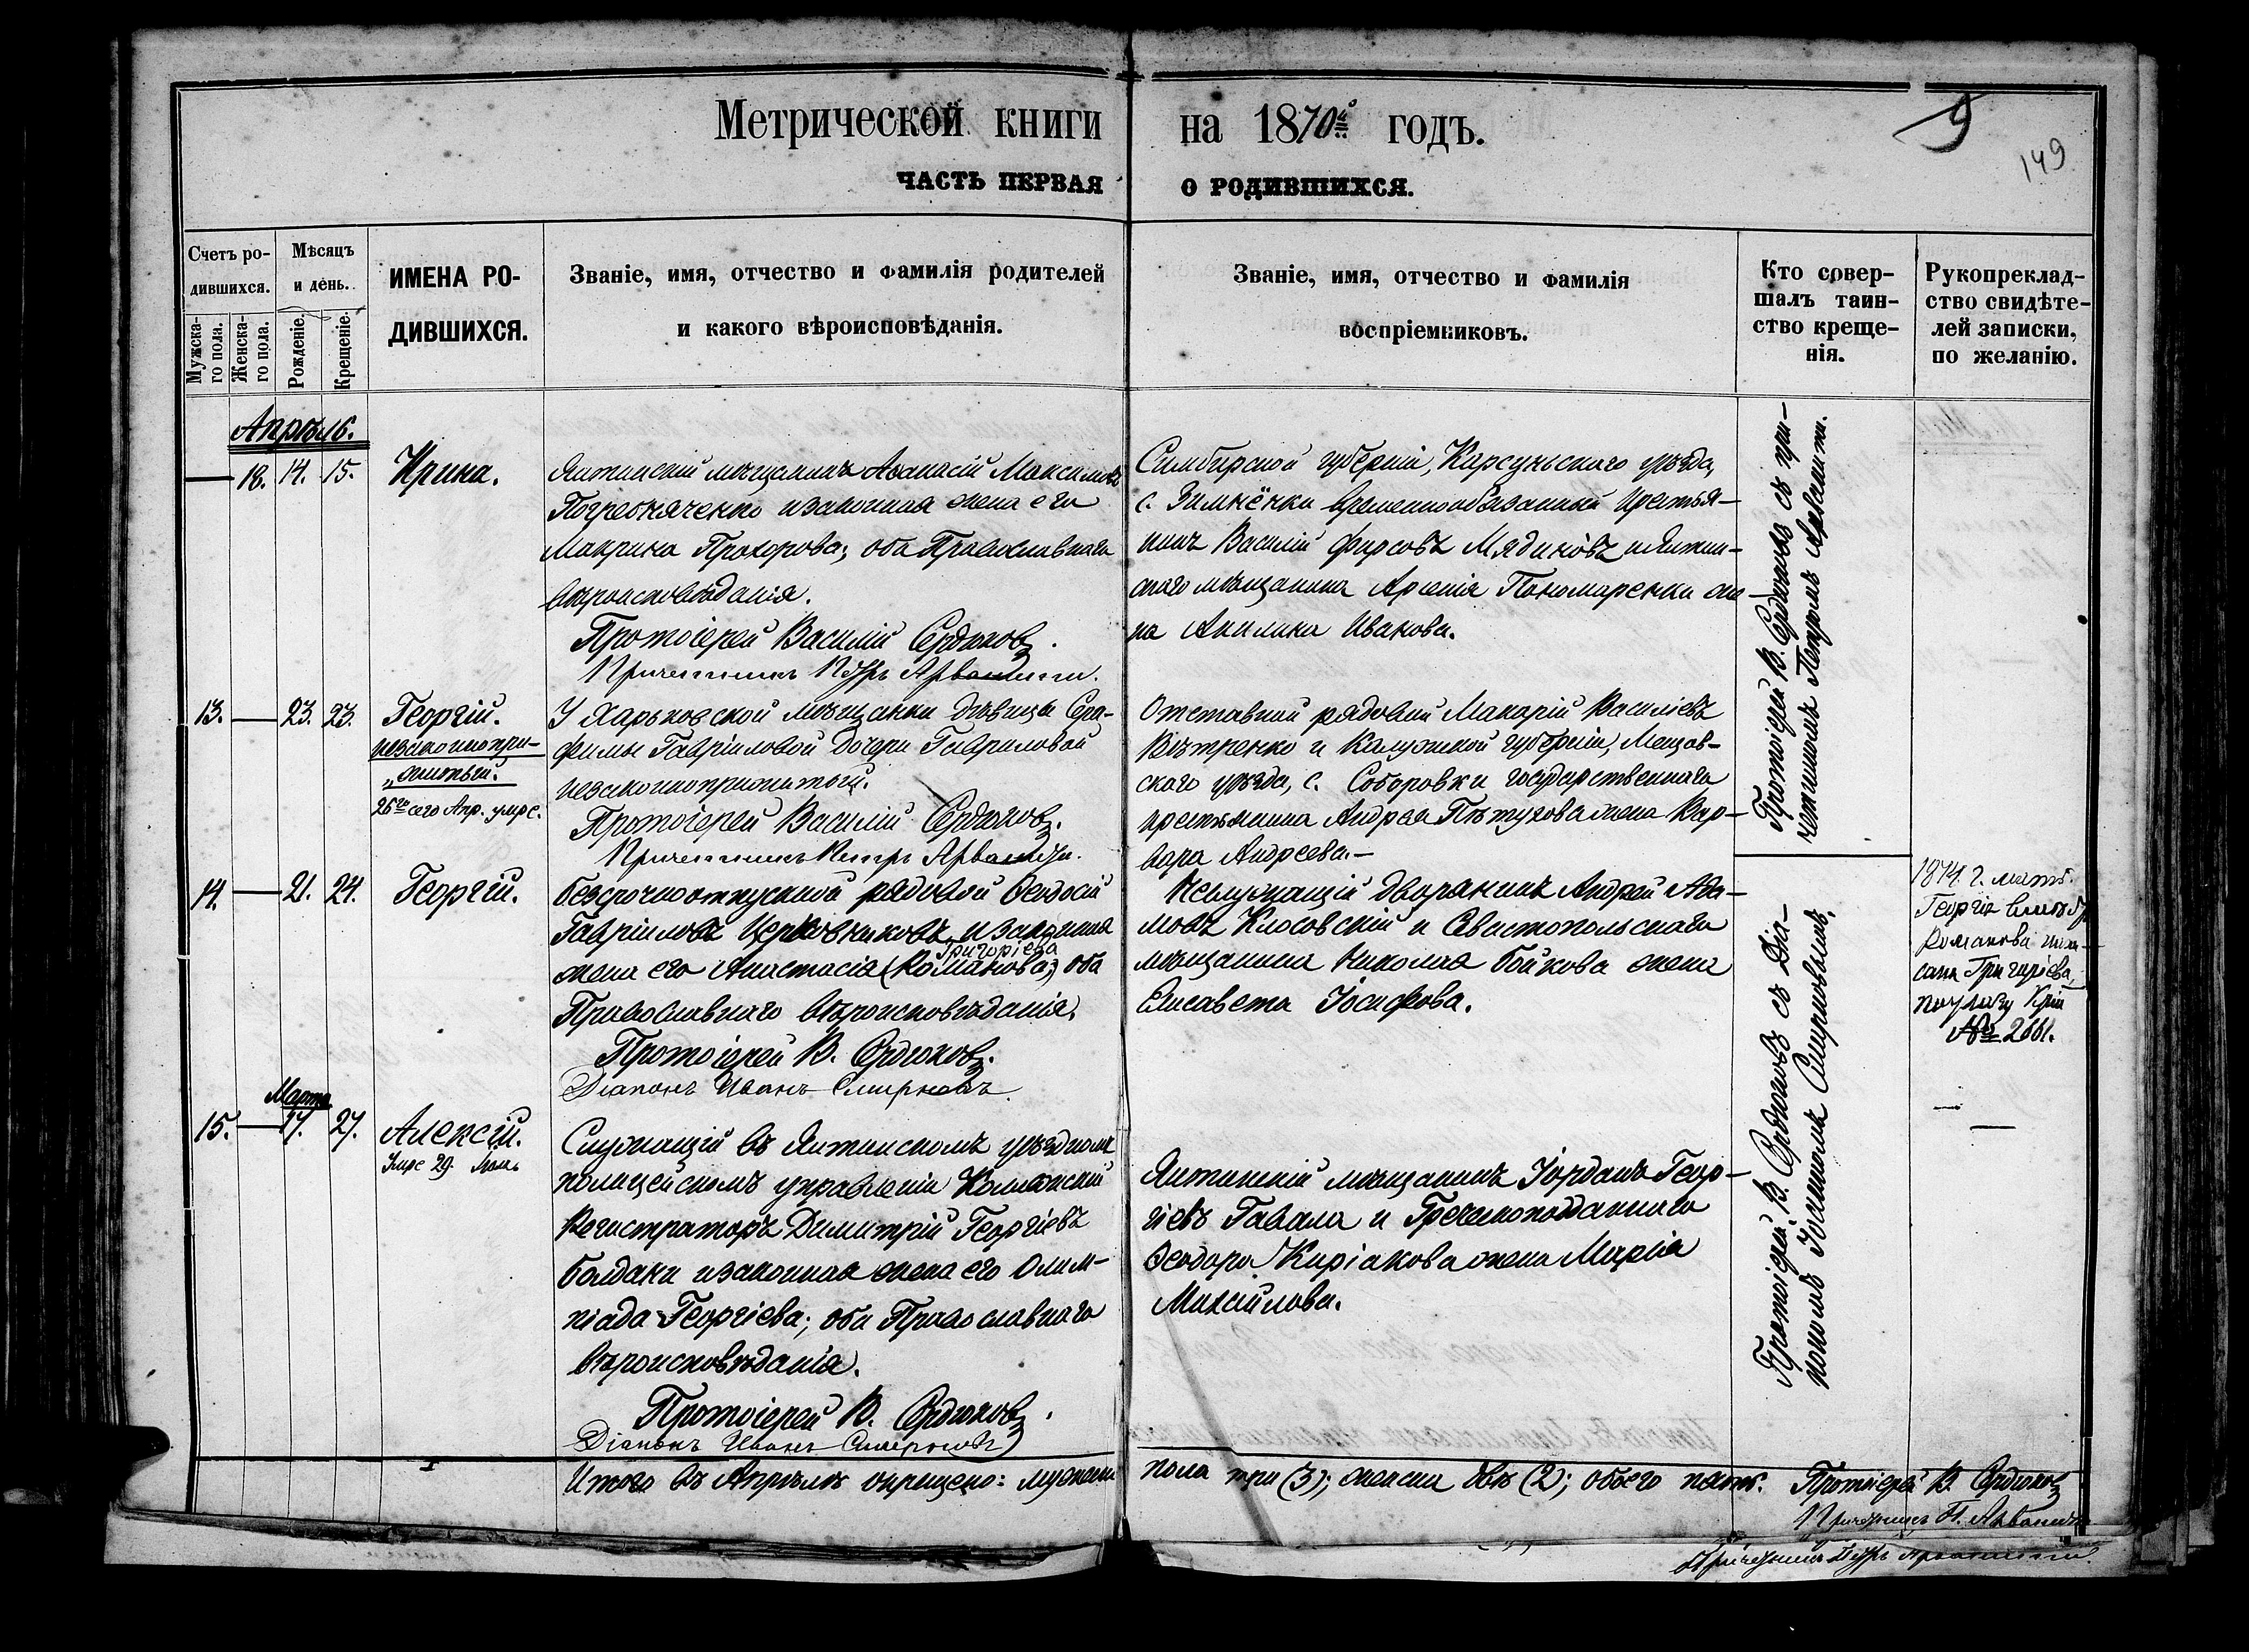 Метрической книги на 1870й годъ.
9
149
ЧАСТЬ ПЕРВАЯ О РОДИВШИХСЯ.
Счетъ ро-
дившихся.
Мужска-
го пола.
Женска-
го пола.
Мѣсяцъ
и день.
Рожденіе.
Крещеніе.
ИМЕНА РО-
ДИВШИХСЯ.
Званіе, имя, отчество и фамилія родителей
и какого вѣроисповѣданія.
Званіе, имя, отчество и фамилія
воспріемниковъ.
Кто совер-
шалъ таин-
ство креще-
нія.
Рукоприклад-
ство свидѣте-
лей записки,
по желанію.
Апрѣль.
— 18. 14. 15. Ирина.
Ялтинскій мѣщанинъ Аѳанасій Максимовъ
Погребняченко и законная жена его
Макрина Прохорова; оба Православнаго
вѣроисповѣданія.
Протоіерей Василій Сердюковъ.
Причетникъ Петръ
Симбирской губерніи, Карсунскаго уѣзда,
с. Зимнёнки временнообязанный крестья-
нинъ Василій Фирсовъ Мядиковъ и Ялтин-
скаго мѣщанина Арсенія Пономаренки же-
на Акилина Иванова.
Протоіерей В. Сердюковъ съ при-
четникомъ Петромъ
13. — 23. 23. Георгій.
незаконнопри-
житый.
26го сего Апр. умре.
У Харьковской мѣщанки дѣвицы Сера-
фимы Гавріиловой дочери Гавриловой
незаконноприжитый.
Протоіерей Василій Сердюковъ.
Причетникъ Петръ
Отставной рядовой Макарій Василіевъ
Вѣтренко и Калужской губерніи, Мещов-
скаго уѣзда, с. Соборовки государственнаго
крестьянина Андрея Пѣтухова жена Вар-
вара Андреева.—
14. — 21. 24. Георгій.
Безсрочноотпускной рядовой Ѳеодосій
Гавріиловъ Церковниковъ и законная
Григоріева
жена его Анастасія (Романова); оба
Православнаго вѣроисповѣданія.
Протоіерей В. Сердюковъ.
Діаконъ Иванъ Смирновъ.
Неслужащій дворянинъ Андрей Ада-
мовъ Клосовскій и Севастопольскаго
мѣщанина Николая Бойкова жена
Елисавета Іосифова.
Протоіерей В. Сердюковъ съ Діа-
кономъ Іоанномъ Смирновымъ.
1874 г. мать
Георгія вмѣсто
Романова напи-
сана Григоріева,
по указу
№ 2661.
Марта
15. — 17. 27. Алексій.
Умре 29.
Служащій въ Ялтинскомъ уѣздномъ
полицейскомъ управленіи Коллежскій
Регистраторъ Димитрій Георгіевъ
Болдаки и законная жена его Олим-
піада Георгіева; оба Православнаго
вѣроисповѣданія.
Протоіерей В. Сердюковъ.
Діаконъ Иванъ Смирновъ
Ялтинскій мѣщанинъ Іорданъ Геор-
гіевъ Гавала и Греческоподданнаго
Ѳеодора Киріакова жена Марія
Михайлова.
Итого въ Апрѣлѣ окрещено: мужеска пола три (3); женска двѣ (2); обоего пять. Протоіерей В. Сердюковъ
Причетникъ П.
Причетникъ Петръ